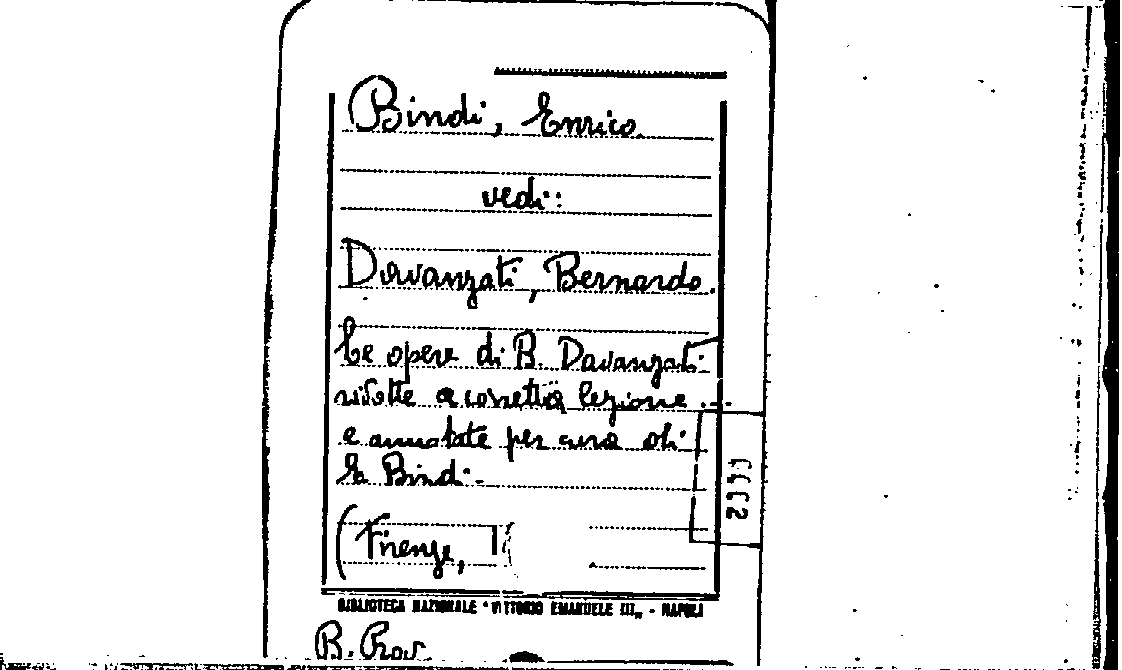 Bindi, Enrico.
vedi:
Davanzati, Bernardo.
Le opere di B. Davanzati
ridotte a corretta lezione ...
e annotate per cura di
E. Bindi.-
(Firenze, 1
BIBLIOTECA NAZIONALE "VITTORIO EMANUELE III„ - NAPOLI
B. Prov.